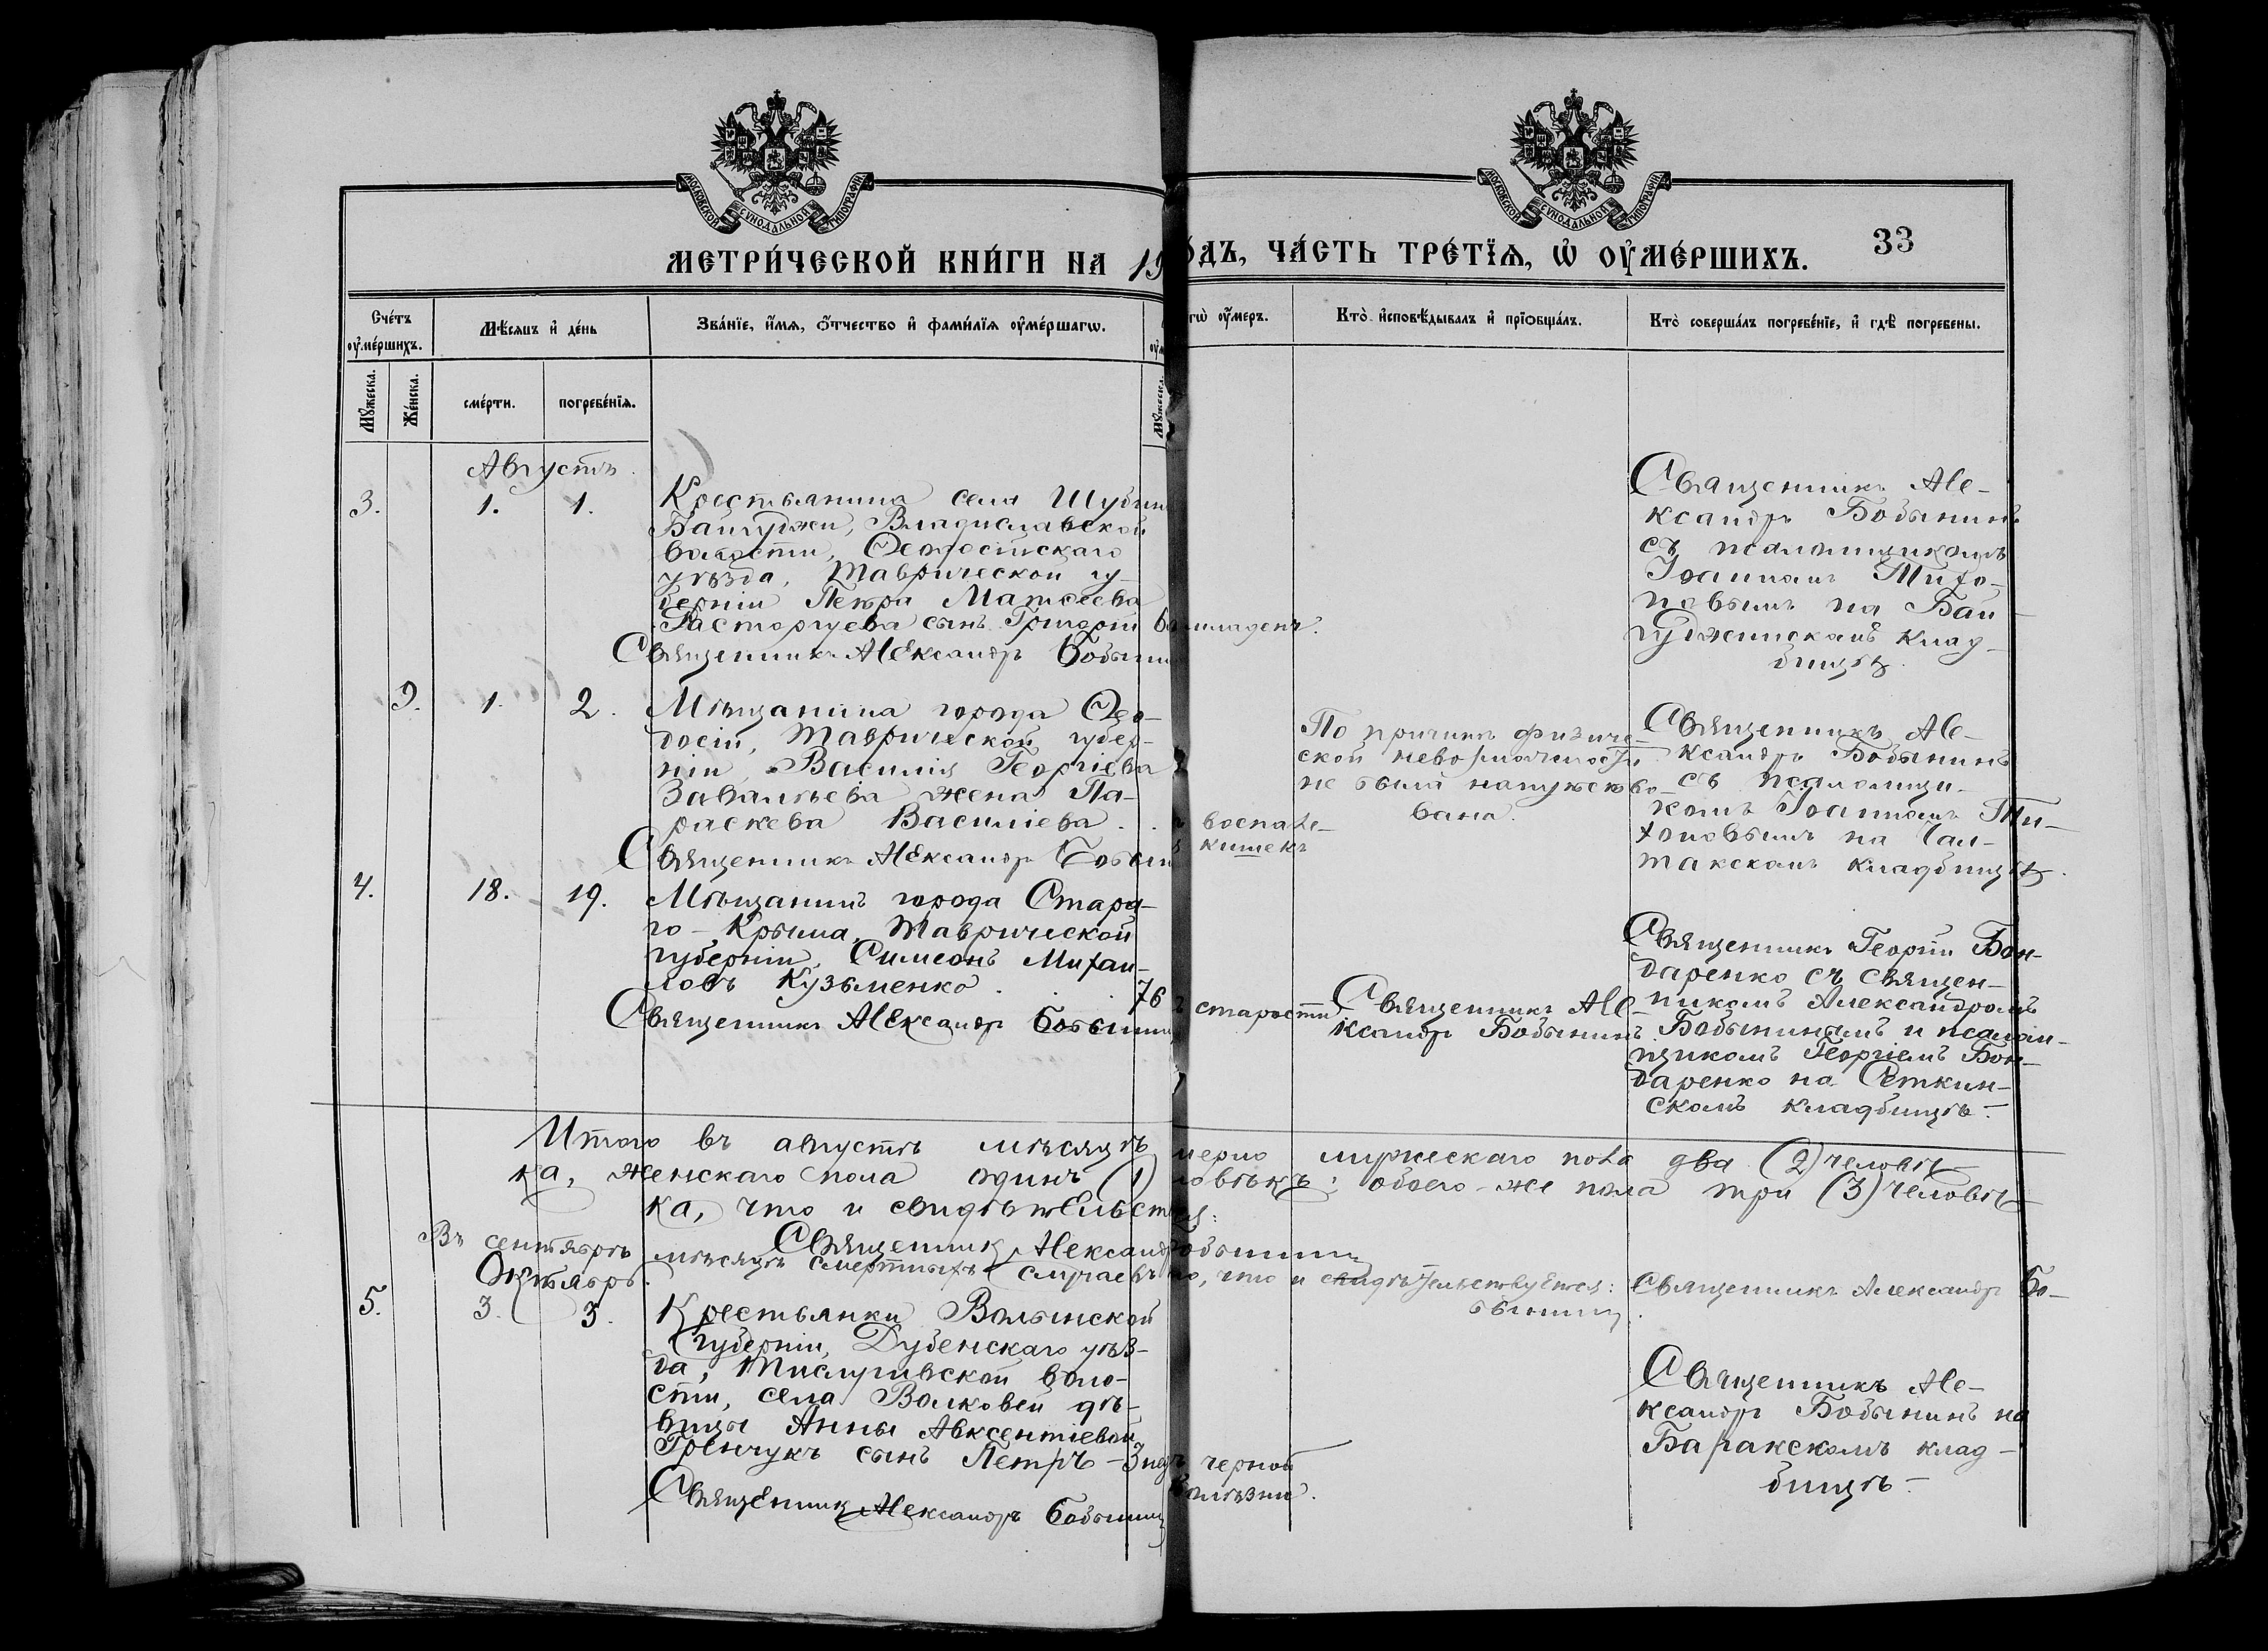 МОСКОВСКОЙ СѴНОДАЛЬНОЙ ТИПОГРАФІИ
МОСКОВСКОЙ СѴНОДАЛЬНОЙ ТИПОГРАФІИ
МЕТРИ́ЧЕСКОЙ КНИ́ГИ НА 19
О́ДЪ, ЧА́СТЬ ТРЕ́ТЇѦ, Ѡ҆ ОУ҆МЕ́РШИХЪ.
33
Сче́тъ оу҆ме́ршихъ.
Мѣ́сѧцъ и҆ де́нь
Зва́нїе, и҆́мѧ, ѻ҆́тчество и҆ фами́лїѧ оу҆ме́ршагѡ.
гѡ̀ оу҆́меръ.
Кто̀ и҆сповѣ́дывалъ и҆ прїѡбща́лъ.
Кто̀ соверша́лъ погребе́нїе, и҆ гдѣ̀ погребены.
Мꙋ́жеска.
Же́нска.
сме́рти.
погребе́нїѧ.
Мꙋ́жеска.
Августъ.
3. 1. 1.
Крестьянина села Шубин
Байгуджи, Владиславской
волости, Ѳеодосійскаго
уѣзда, Таврической гу-
берніи Петра Матѳеева
Расторгуева сынъ Григорій
младен.
Священникъ Александръ Бобынин
Священникъ Але-
ксандръ Бобынинъ
съ псаломщикомъ
Іоанномъ Тихо-
новымъ на Бай
гуджинскомъ клад-
бищѣ.
9. 1. 2.
Мѣщанина города Ѳео-
досіи, Таврической губер-
ніи, Василія Георгіева
Завалиева жена Па-
раскева Василіева
Священникъ Александръ Бобынин
воспале-
кишекъ
По причинѣ физиче-
ской невозможности
не была напутство-
вана.
Священникъ Але-
ксандръ Бобынинъ
съ псаломщи-
комъ Іоанномъ Ти-
хоновымъ на
кладбищѣ.
4. 18. 19.
Мѣщанинъ города Стара-
го-Крыма, Таврической
губерніи, Симеонъ Михаи-
ловъ Кузьменко
76
старости
Священникъ Александръ Бобынин
Священникъ Але-
ксандръ Бобынинъ.
Священникъ Георгій Бон-
даренко съ священ-
никомъ Александромъ
Бобынинымъ и псалом-
щикомъ Георгіемъ Бон-
даренко на Сеткин-
скомъ кладбищѣ.-
Итого въ августѣ мѣсяцѣ мерло мужескаго пола два (2) человѣ-
ка, женскаго пола одинъ (1) ловѣкъ; обоего-же пола три (3) человѣ-
ка, что и свидѣтельст
Священник Александр обынинъ
Въ сентябрѣ мѣсяцѣ смертныхъ случаевъ о, что и свидѣтельствуется: Священникъ Александръ Бо-
бынинъ.
Октябрь.
5. 3. 3.
Крестьянки Волынской
губерніи, Дубенскаго уѣз-
да, волο-
сти, села Волковеи дѣ-
вицы Анны Авксентіевой
Гренчукъ сынъ Петръ - 3 нед
черной
болѣзни.
Священник Александръ Бобынинъ
Священникъ Але-
ксандръ Бобынинъ на
Баракскомъ клад-
бищѣ.-